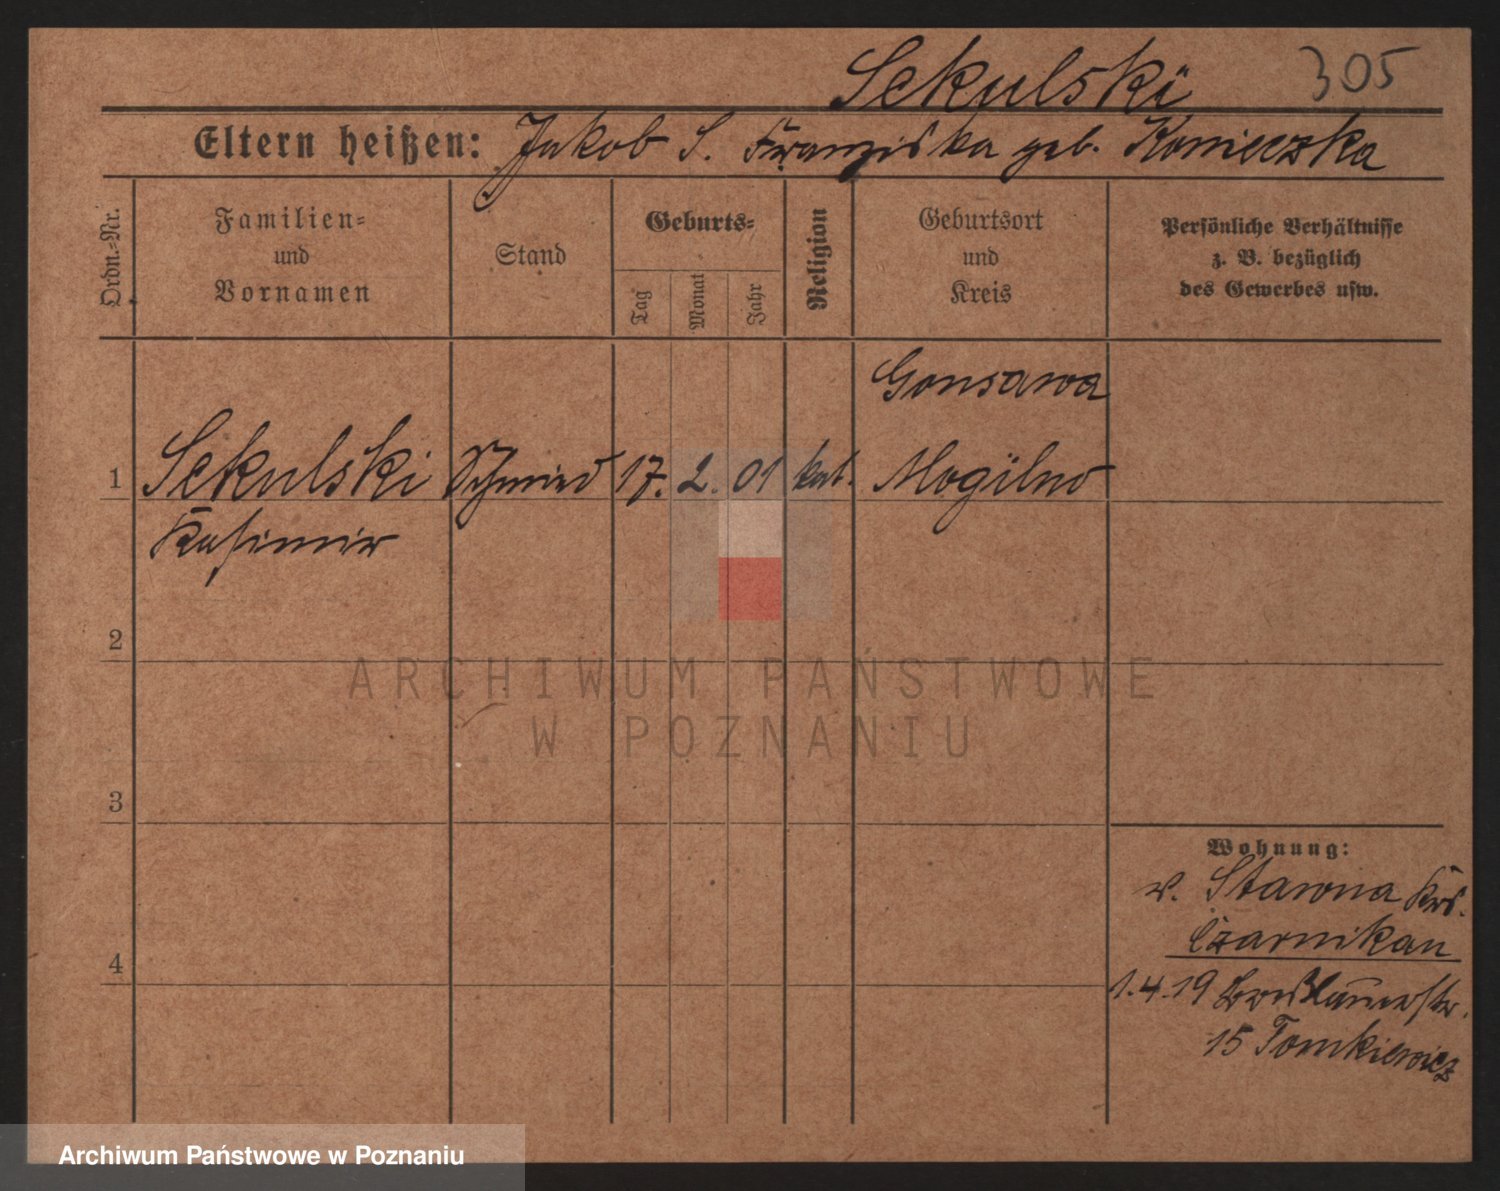 Sekulski 305
Eltern heißen: Jakob S. Franziska geb. Konieczka
Ordn.-Nr.
Familien-
und
Vornamen
Stand
Geburts-
Tag
Monat
Jahr
Religion
Geburtsort
und
Kreis
Persönliche Verhältnisse
z. B. bezüglich
des Gewerbes usw.
Gonsawa
1 Sekulski Schmied 17. 2. 01 kat. Mogilno
Kasimir
2
ARCHIWUM PAŃSTWOWE
W POZNANIU
3
Wohnung:
v. Stawna Krs.
Czarnikau
4
1.4.19 Breslauerstr.
15 Tomkiewicz
Archiwum Państwowe w Poznaniu